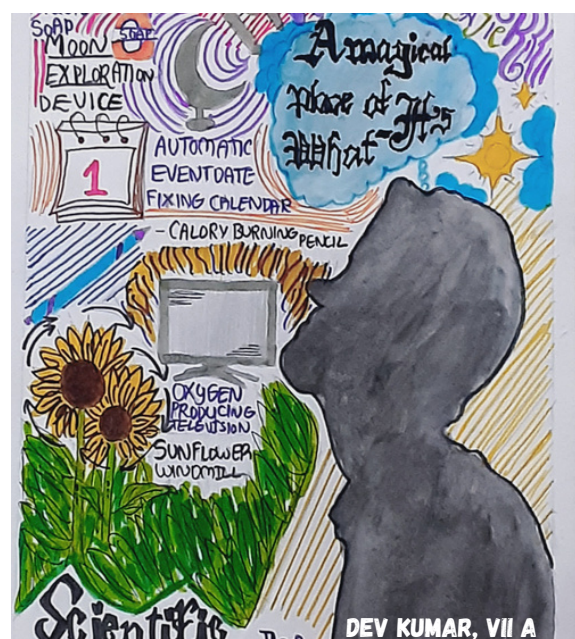 SOAP
SOAP
MOON
EXPLORATION
DEVICE
A magical
place of It's
What
1
AUTOMATIC
EVENT DATE
FIXING CALENDAR
- CALORY BURNING PENCIL
OXYGEN
PRODUCING
TELEVISION
SUNFLOWER
WINDMILL
Scientific
DEV KUMAR, VII A